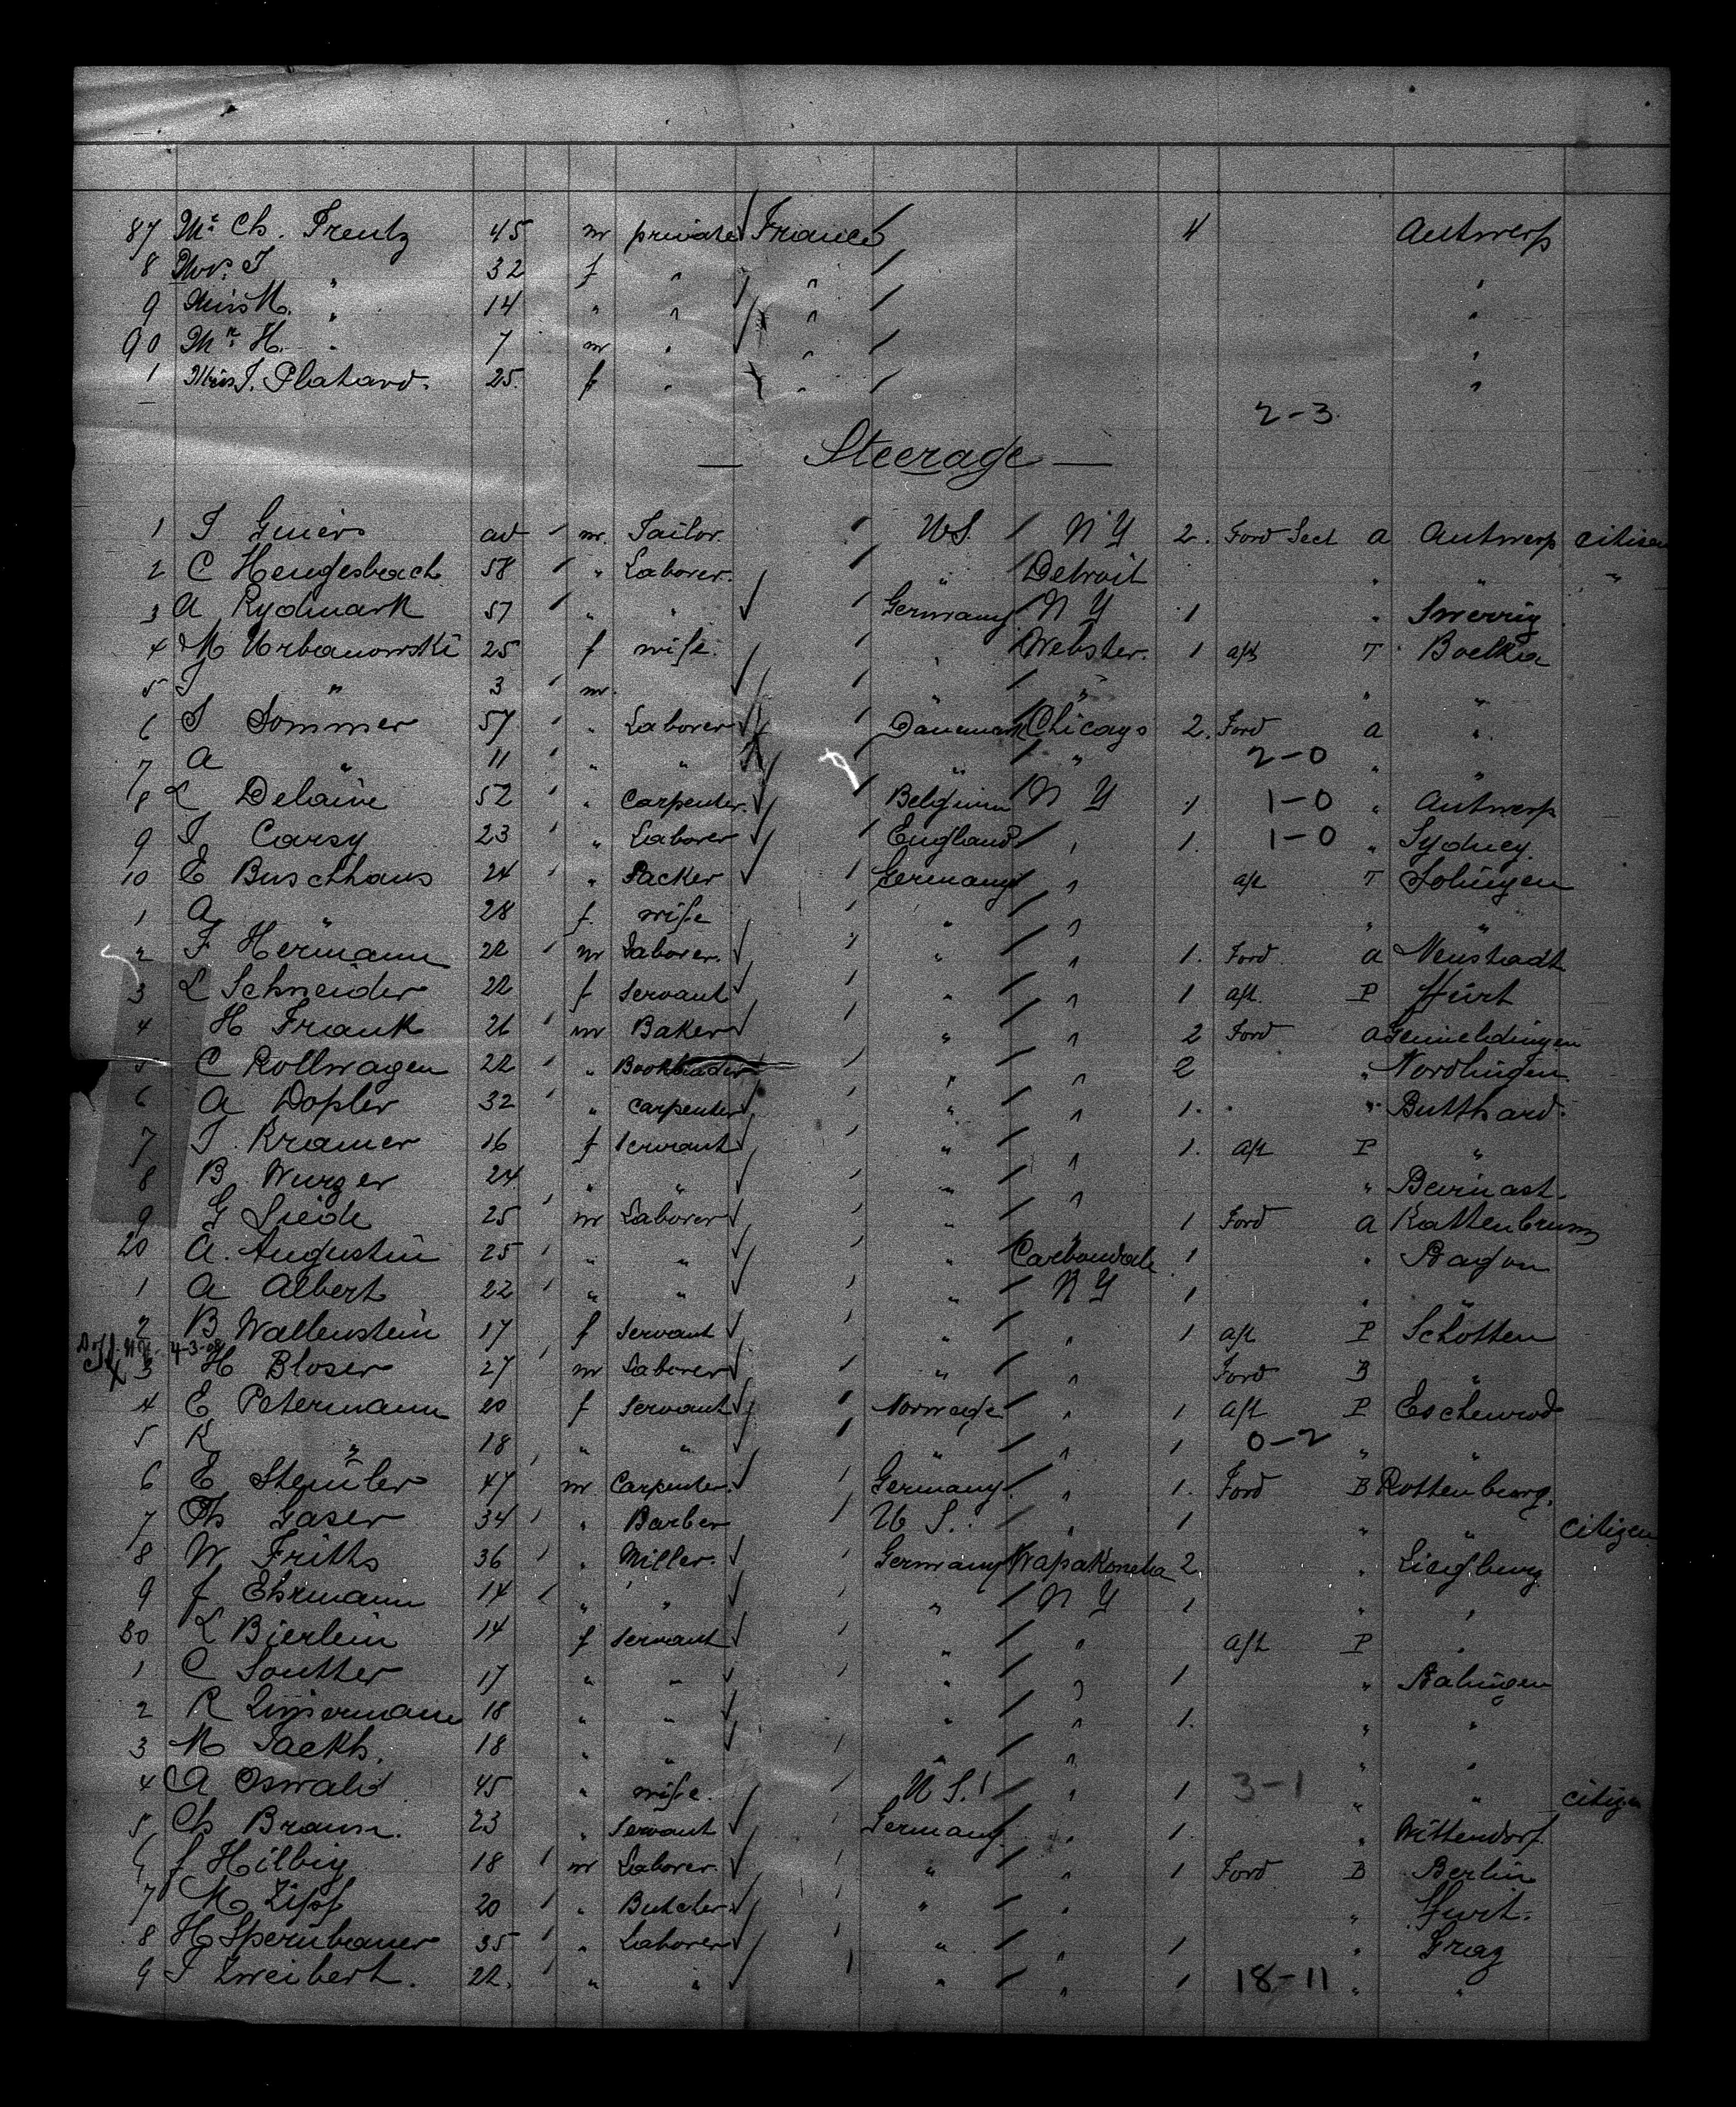 87 Mr Ch. Frentz 45 m private France 4 Antwerp
8 Mrs. J " 32 f " " "
9 Miss M. " 14 " " " "
90 Mr H. " 7 m " " "
1 Miss J. Platard. 25. f " " "
2-3
— Steerage —
1 J Gniers ad m. Tailor. U.S. N Y 2. Ford Sect a Antwerp citizen
2 C Hengesbach 58 " Laborer. " Detroit " " "
3 A Rydmark 57 " " Germany N Y 1 "
4 M Urbanowski 25 f wife. " Webster. 1 aft T
5 J " 3 m. " " " "
6 S Sommer 57 " Laborer Danemark Chicago 2. Ford a "
7 A " 11 " " " " 2-0 " "
8 L Delaive 52 " Carpenter. Belgium N Y 1 1-0 " Antwerp
9 J Carsy 23 " Laborer England. " 1. 1-0 " Sydney.
10 E Buschhaus 24 " Packer Germany " aft T Solingen
1 A " 28 f. wife " " " "
2 F Hermann 22 m Laborer. " " 1. Ford. a Neustadt
3 L Schneider 22 f Servant " " 1 aft. P
4 H Frank 26 m Baker " " 2 Ford a
5 C Rollwagen 22 " Bookbinder " " 2 " Nordlingen
6 A Dopler 32 " Carpenter " " 1. " " Butthard.
7 J. Kramer 16 f Servant " " 1. aft P "
8 B Wurzer 24 " " " " "
9 G Siede 25 m Laborer " " 1 Ford a Kattenbrunn
20 A. Augustin 25 " " " Carbondale 1 "
1 A Albert 22 " " " N Y 1 " "
2 B Wallenstein 17 f Servant " " 1 aft P Schotten
4-3-08
3 H Bloser 27 m Laborer " " Ford B "
4 E Petermann 20 f Servant Norwege " 1 aft P Eschenrod
5 K " 18 " " " " 1 0-2 " "
6 E Stemler 47 m Carpenter. Germany. " 1. Ford B Rottenburg.
7 Th Gaser 34 " Barber U S. " 1 " " citizen
8 W Friths 36 " Miller. Germany Wapakoneta 2. "
9 J Ehrmann 14 " " " N Y 1 " "
30 K Bierlein 14 f Servant " " aft P "
1 C Soutter 17 " " " " 1 " Balingen
2 R 18 " " " " 1. " "
3 M 18 " " " " " "
4 A Oswald 45 " wife. U S. " 1 3-1 " " citizen
5 Ch Braun. 23 " Servant Germany. " 1. " Wittendorf
6 J Hilbig 18 m Laborer. " " 1 Ford B Berlin
7 M Zipf 20 " Butcher. " " "
8 H Spernbauer 35 " Laborer " " 1 "
9 J Zweibert. 22. " " " " 1 18-11 " "